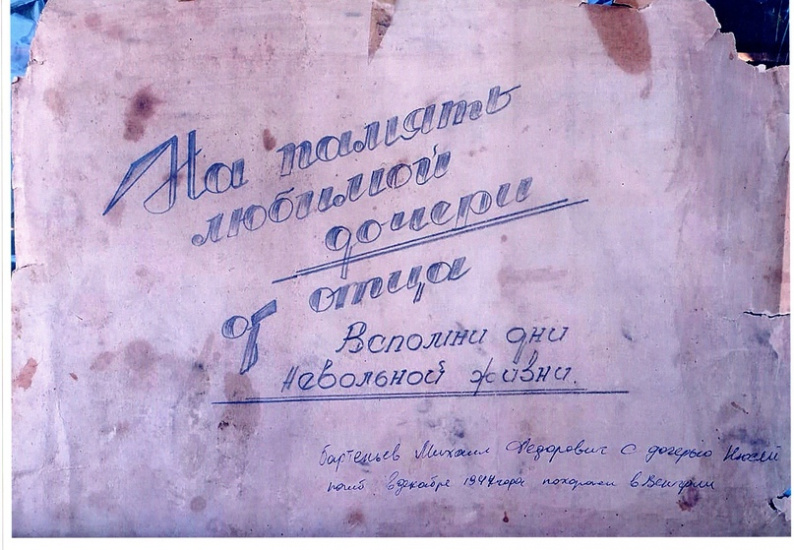 На память
любимой
дочери
от отца
Вспомни дни
невольной жизни.
Бартеньев Михаил Федорович с дочерью Нюсей
погиб в декабре 1944 года похоронен в Венгрии